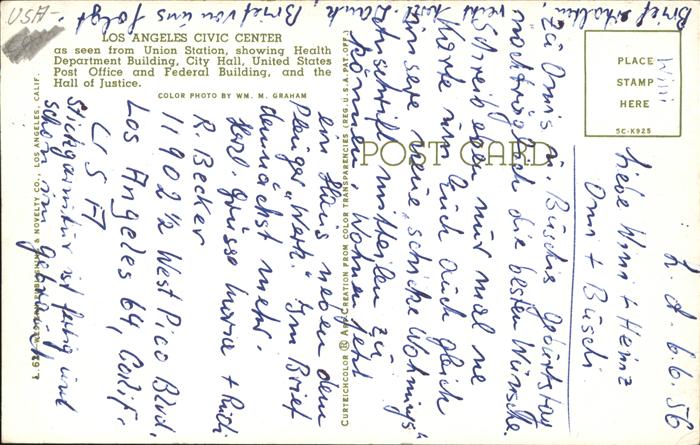 USA-
LOS ANGELES CIVIC CENTER
as seen from Union Station, showing Health
Department Building, City Hall, United States
Post Office and Federal Building, and the
Hall of Justice.
COLOR PHOTO BY WM. M. GRAHAM
POST CARD
PLACE
STAMP
HERE
5C-K925
Wini
CURTEICHCOLOR ® ART-CREATION FROM COLOR TRANSPARENCIES (REG. U.S.A. PAT. OFF.)
WESTERN PUBLISHING & NOVELTY CO., LOS ANGELES, CALIF.
6.6.56
Liebe Winni + Heinz
Omi + Büschi
Zu Omis u. Büschis Geburtstag
nachträglich die besten Wünsche
Schreib eben nur mal ne
Karte um Euch auch gleich
unsere neue, schicke Wohnungs
anschrift mitteilen zu
können. Wohnen jetzt
ein Haus neben dem
"Werk". Im Brief
demnächst mehr.
Herzl. Grüsse + Rudi
R. Becker
11902½ West Pico Blvd.
Los Angeles 64, Calif.
USA
ist fertig und
schon in
Brief erhalten,
Dank, Brief von uns folgt.